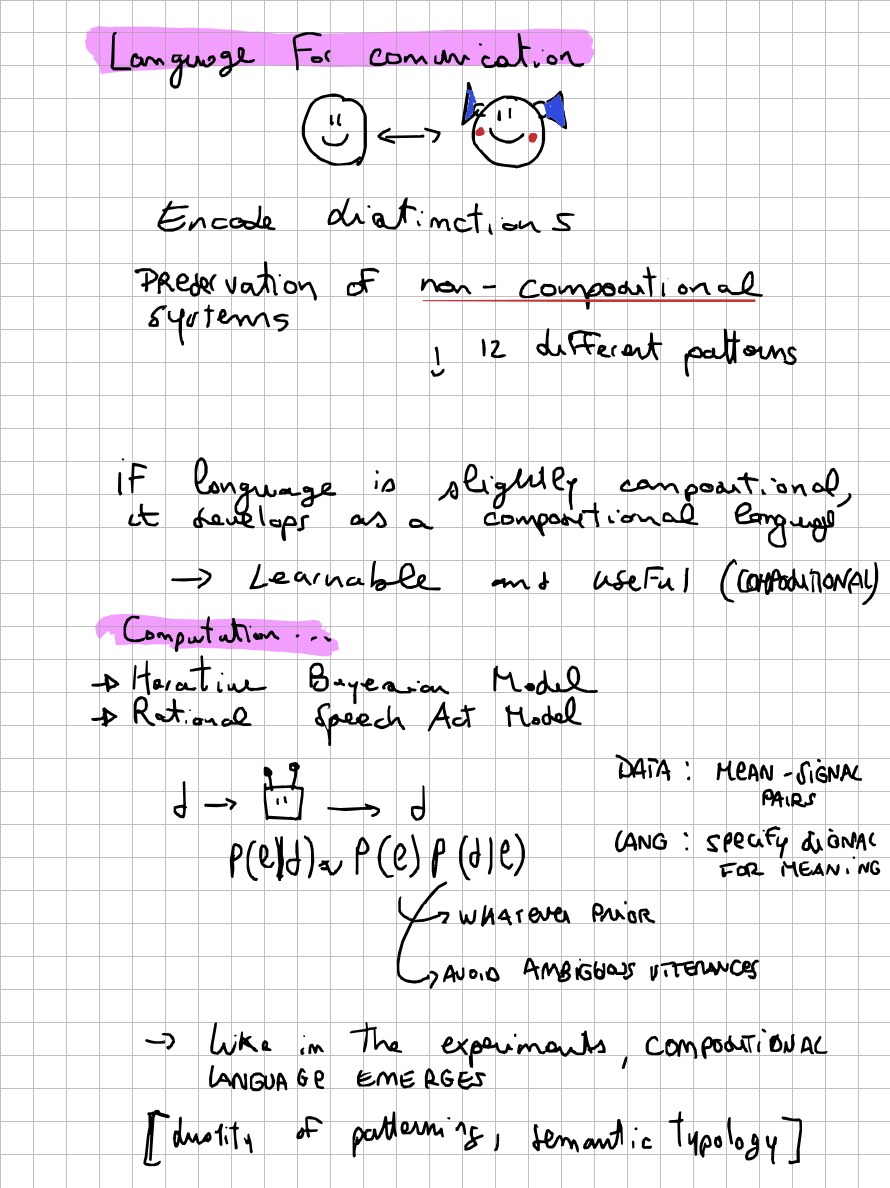 Language For comunication
Encode distinctions
PREservation of non-compositional
systems
! 12 different patterns
if language is slightly compositional,
it develops as a compositional language
→ Learnable and useful (COMPOSITIONAL)
Computation ...
→ Iterative Bayesian Model
→ Rational Speech Act Model
d → → d
DATA : MEAN-SIGNAL
PAIRS
P(l|d) ∝ P(l) P(d|l)
LANG : SPECIFY SIGNAL
FOR MEANING
→ WHATEVER PRIOR
→ AVOID AMBIGUOUS UTTERANCES
→ Like in The experiments, COMPOSITIONAL
LANGUAGE EMERGES
[duality of patterning, semantic typology]